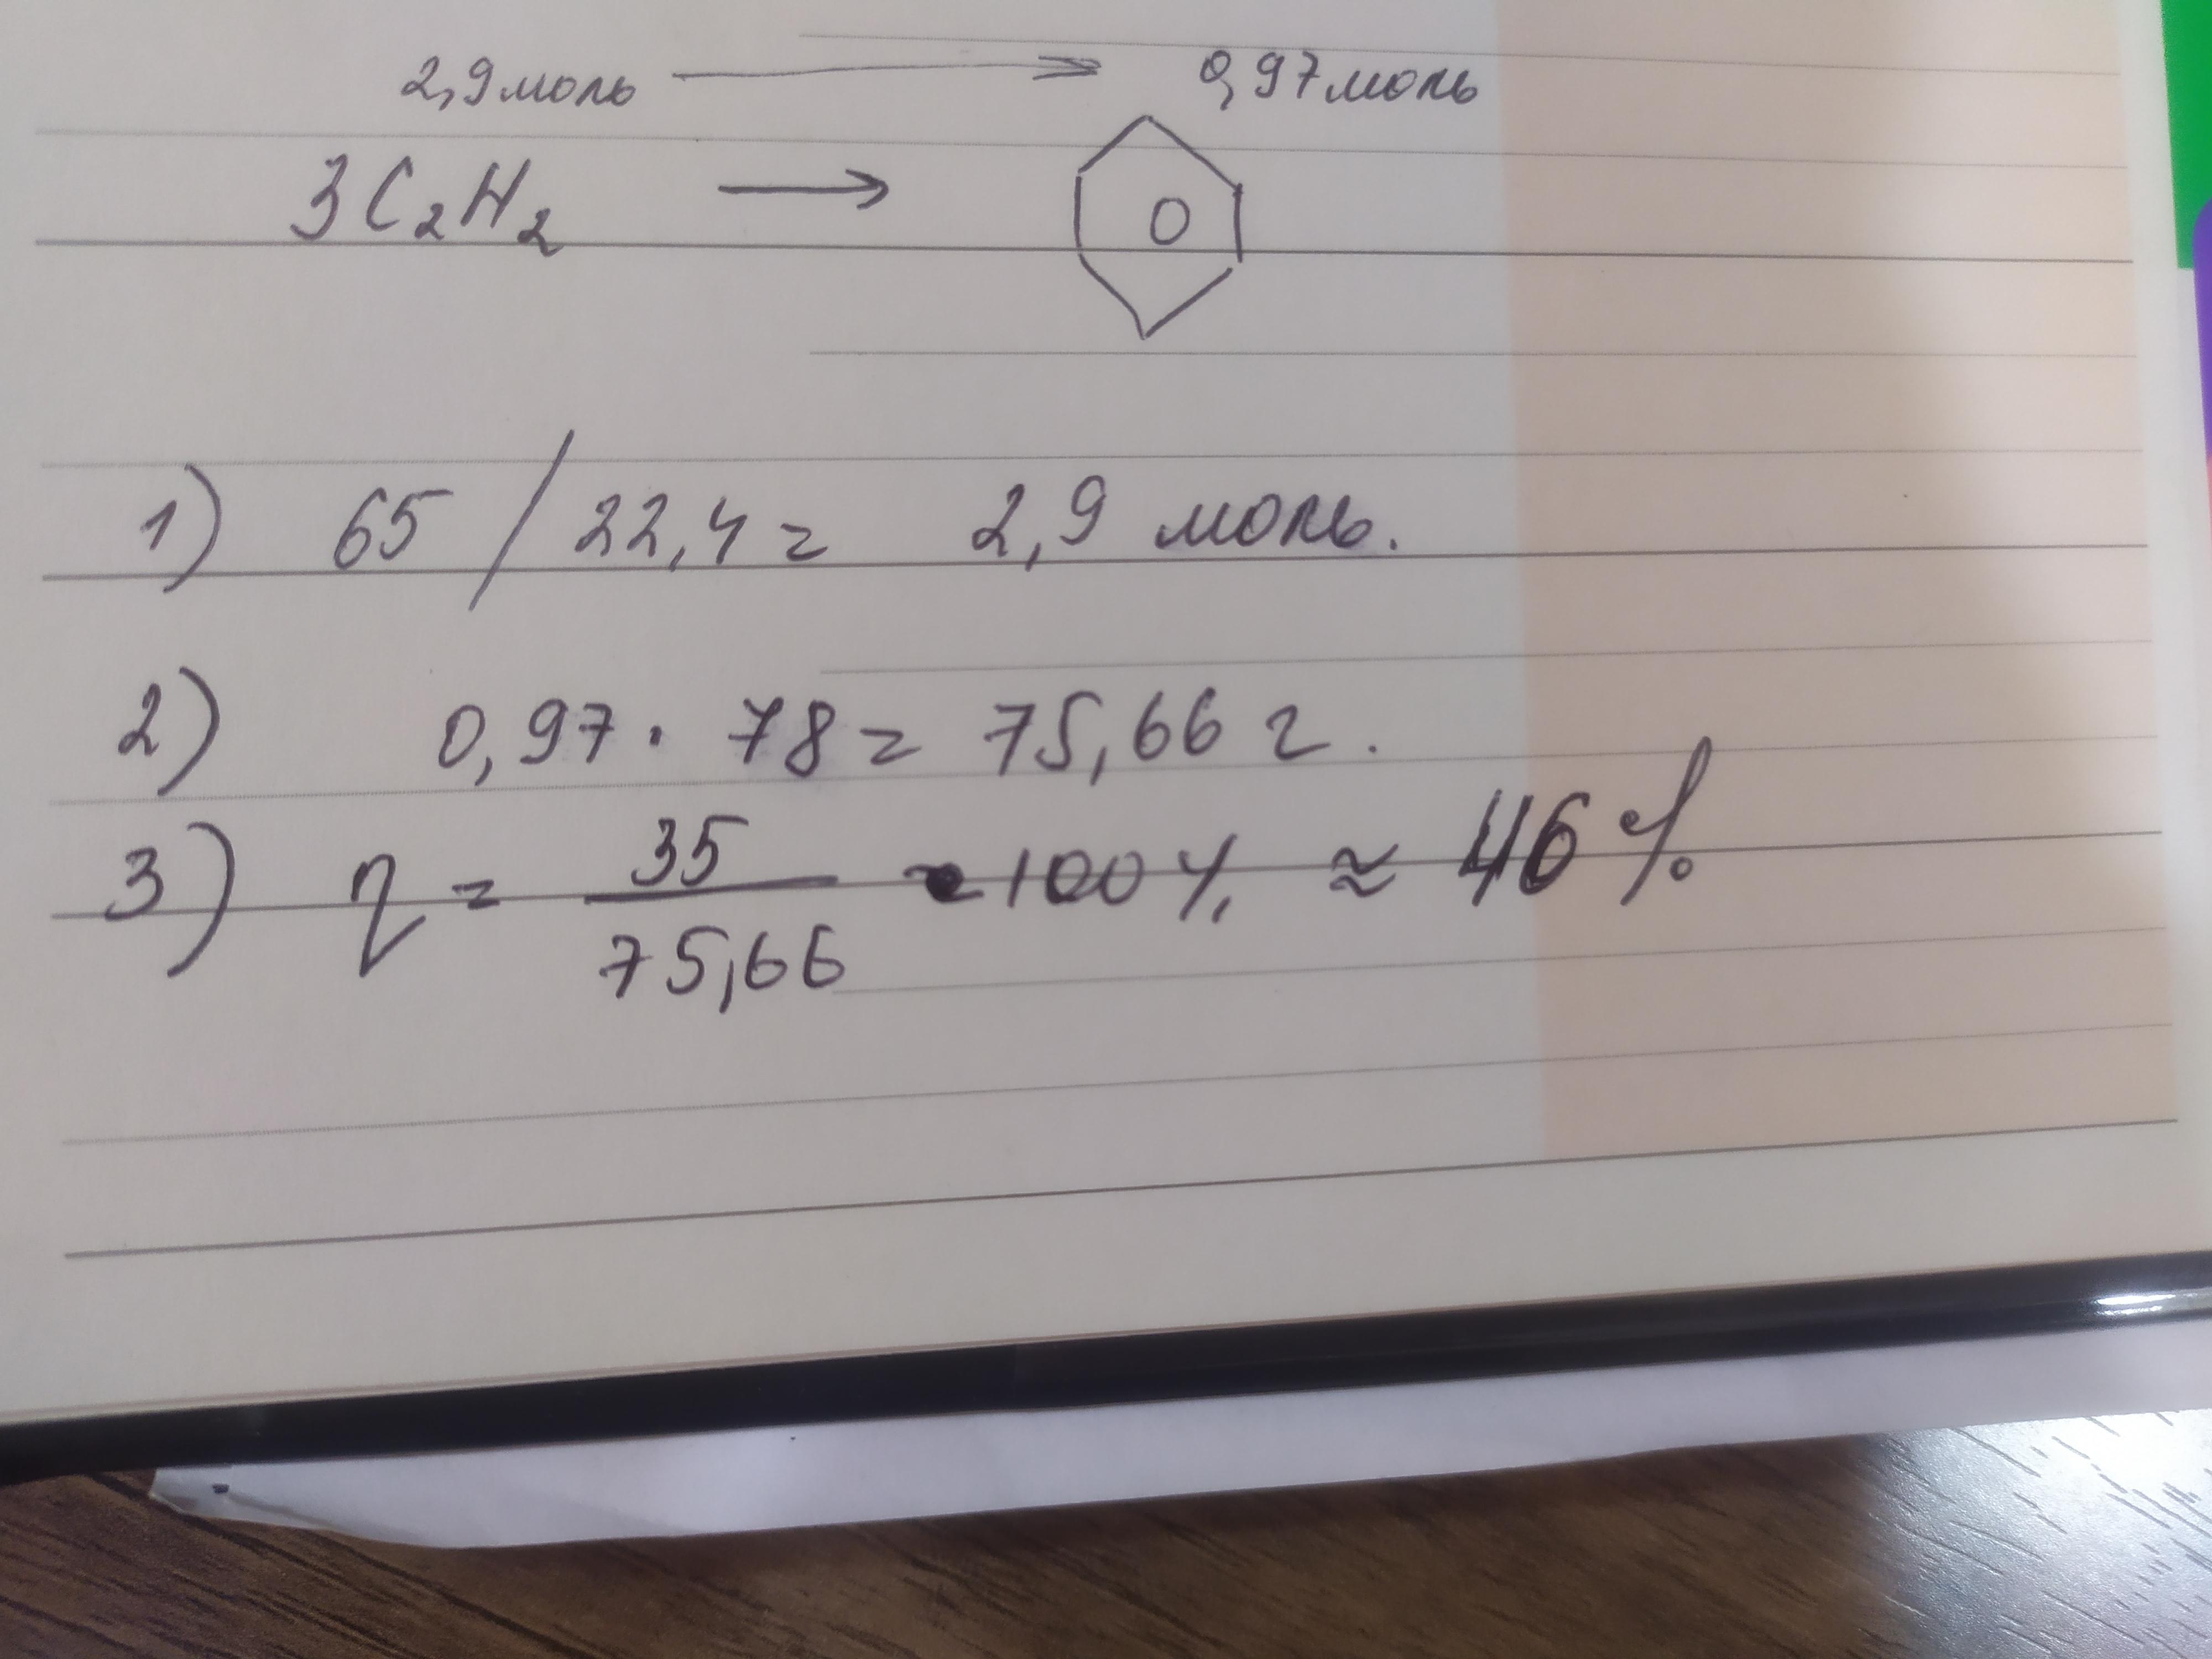 2,9 моль → 0,97 моль
3C₂H₂ →
1) 65 / 22,4 = 2,9 моль.
2) 0,97 · 78 = 75,66 г.
3) η = 35/75,66 · 100% ≈ 46%